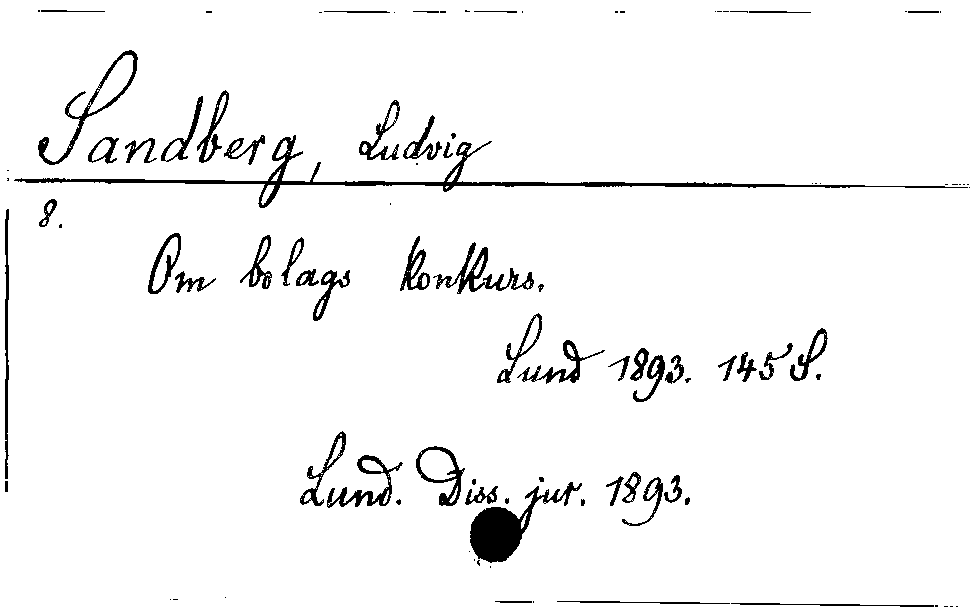 Sandberg, Ludvig
8.
Om bolags konkurs.
Lund 1893. 145 S.
Lund. Diss. jur. 1893.